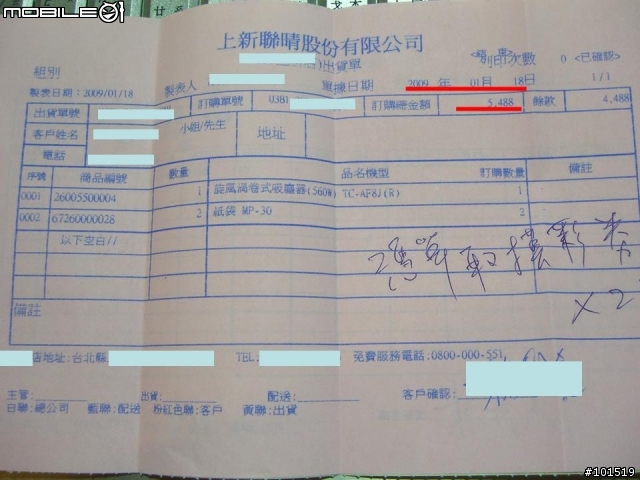 MOBILE01
上新聯晴股份有限公司
出貨單
列印次數 0 <已確認>
組別
製表人
單據日期 2009 年 01月 18日
1/1
製表日期:2009/01/18
出貨單號
訂購單號 03B1
訂購總金額 5,488
餘款 4,488
客戶姓名
小姐/先生
地址
電話
序號 商品編號 數量 品名機型 訂購數量 備註
0001 26005500004 1 旋風渦卷式吸塵器(560W) TC-AF8J(R) 1
0002 67260000028 2 紙袋 MP-30 2
以下空白//
憑單取換彩券
X2
備註
店地址:台北縣
TEL:
免費服務電話:0800-000-551
主管:
出貨:
配送:
客戶確認:
白聯:總公司 藍聯:配送 粉紅色聯:客戶 黃聯:出貨
#101519